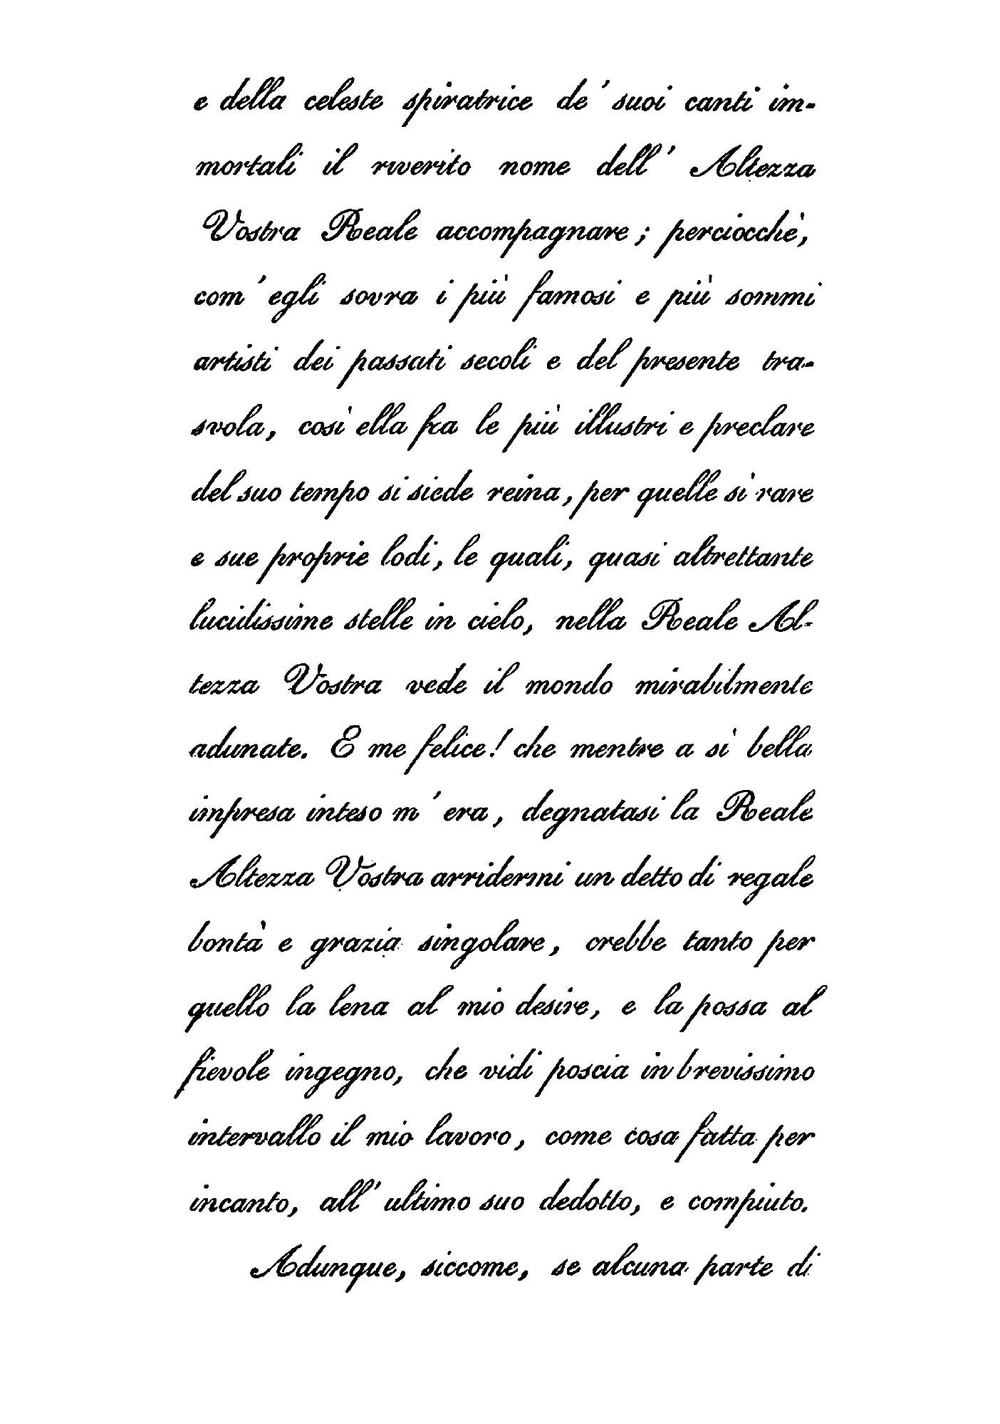 e della celeste spiratrice de' suoi canti im-
mortali il riverito nome dell' Altezza
Vostra Reale accompagnare; perciocchè,
com' egli sovra i più famosi e più sommi
artisti dei passati secoli e del presente tra-
svola, così ella fra le più illustri e preclare
del suo tempo si siede reina, per quelle sì rare
e sue proprie lodi, le quali, quasi altrettante
lucidissime stelle in cielo, nella Reale Al-
tezza Vostra vede il mondo mirabilmente
adunate. E me felice! che mentre a sì bella
impresa inteso m' era, degnatasi la Reale
Altezza Vostra arridermi un detto di regale
bontà e grazia singolare, crebbe tanto per
quello la lena al mio desire, e la possa al
fievole ingegno, che vidi poscia in brevissimo
intervallo il mio lavoro, come cosa fatta per
incanto, all' ultimo suo dedotto, e compiuto.
Adunque, siccome, se alcuna parte di